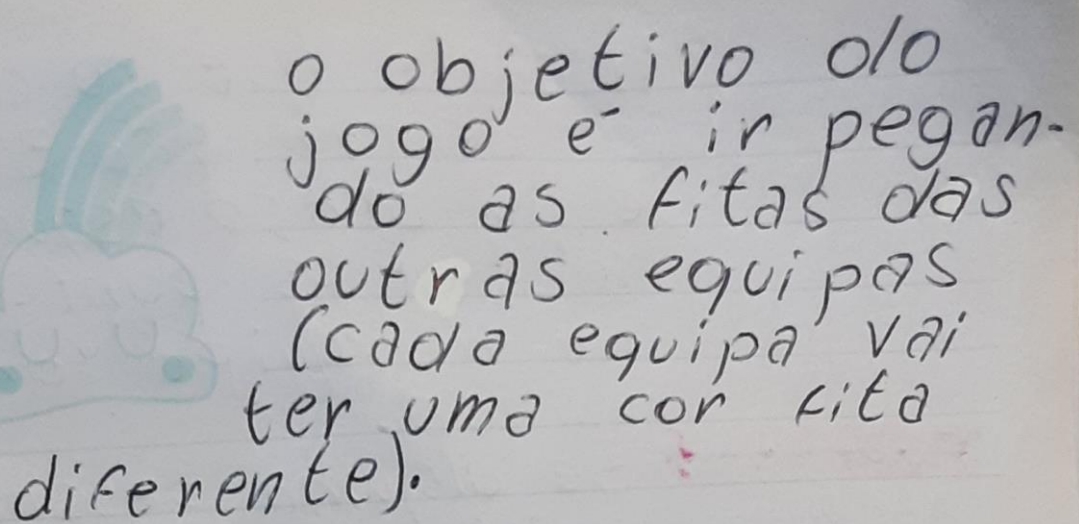 o objetivo do
jogo é ir pegan-
do as fitas das
outras equipas
(cada equipa vai
ter uma cor fita
diferente).